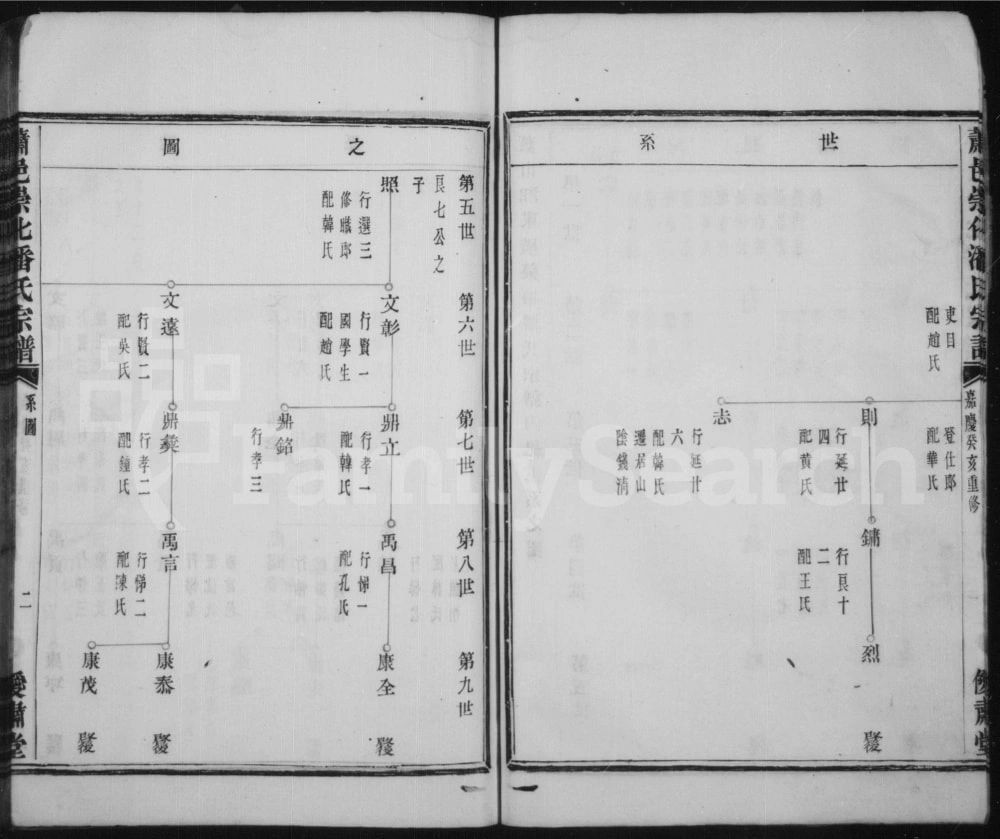 世系
吏目
配趙氏
登仕郎
配華氏
則
行延廿
四
配黄氏
鏞
行良十
二
配王氏
烈
發
志
行延廿
六
配韓氏
遷居山
陰錢清
蕭邑崇化潘氏宗譜
嘉慶癸亥重修
之圖
第五世
第六世
第七世
第八世
第九世
良七公之
子
照
行選三
修職郎
配韓氏
文彰
行賢一
國學生
配趙氏
鼎立
行孝一
配韓氏
禹昌
行悌一
配孔氏
康全
發
鼎銘
行孝三
文遠
行賢二
配吳氏
鼎彝
行孝二
配鍾氏
禹言
行悌二
配陳氏
康泰
發
康茂
發
蕭邑崇化潘氏宗譜
系圖
二
FamilySearch